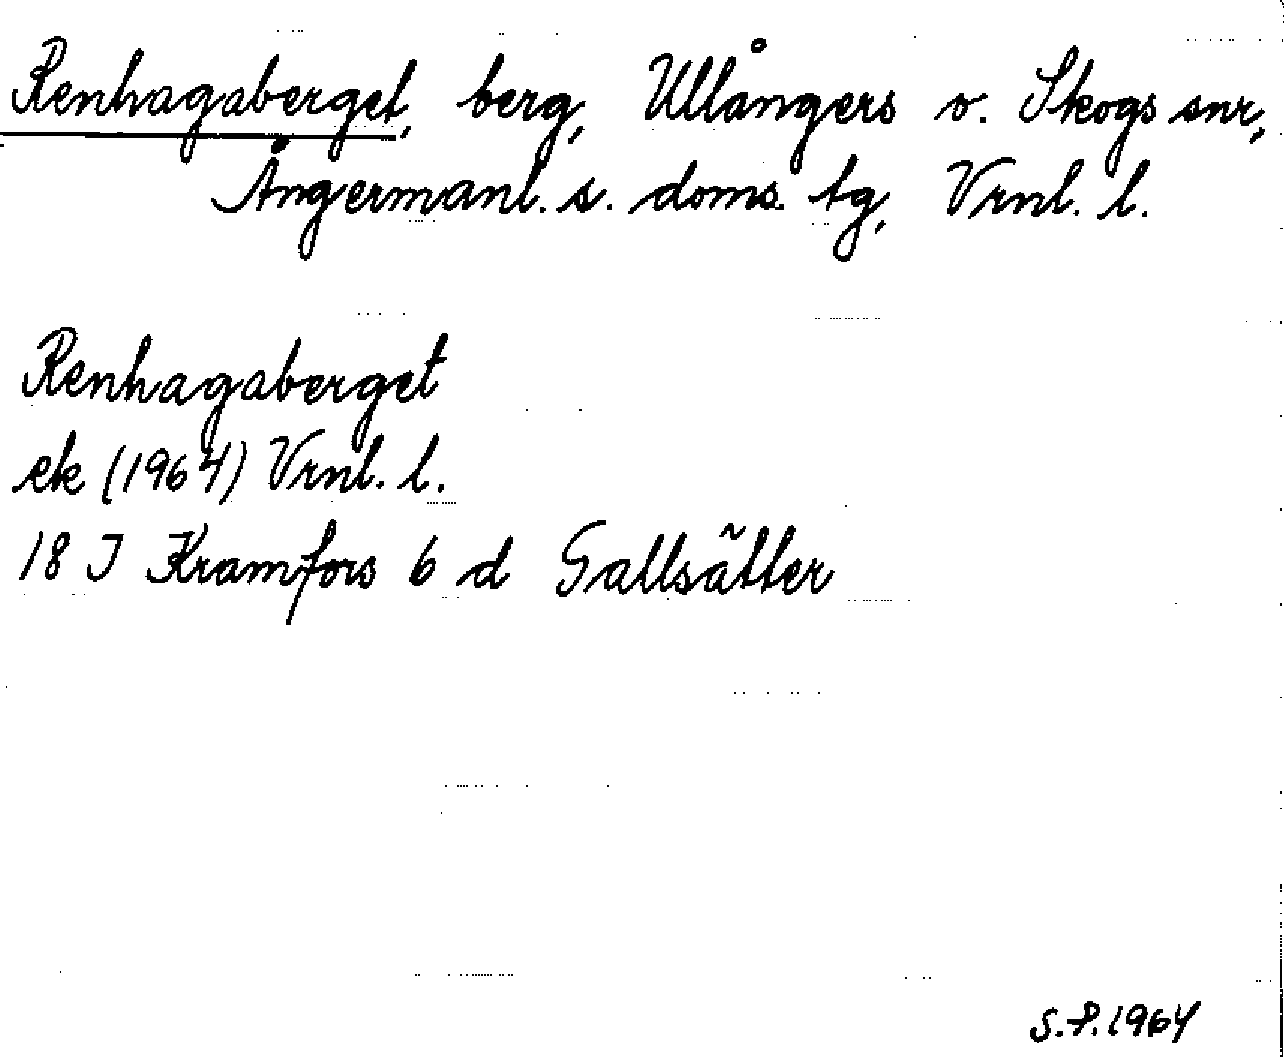 Renhagaberget, berg, Ullångers o. Skogs snr,
Ångermanl. s. doms. tg, Vrnl. l.
Renhagaberget
ek (1964) Vrnl. l.
18 J Kramfors 6 d Gallsätter
S.P. 1964